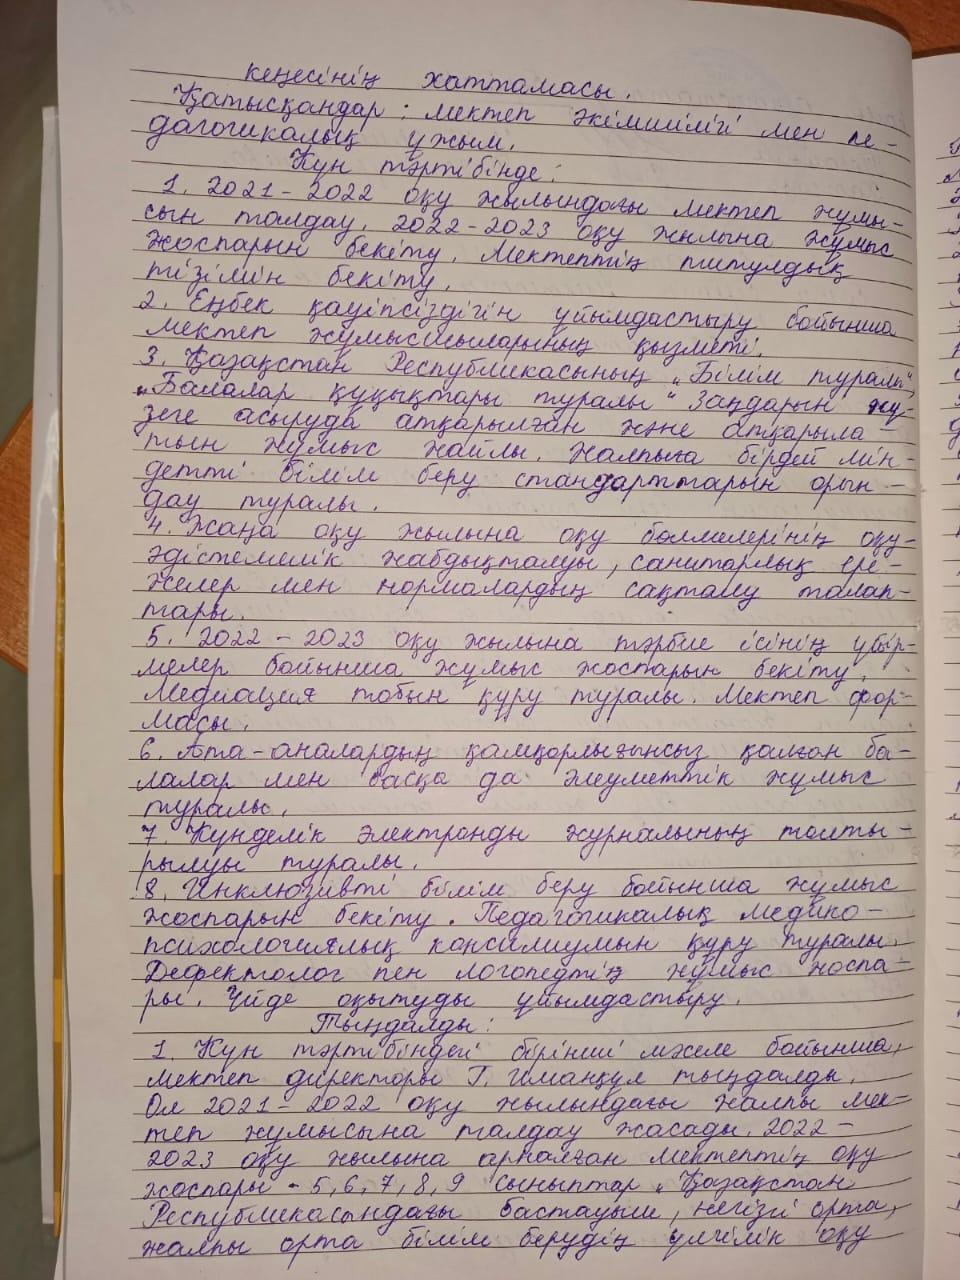 кеңесінің хаттамасы.
Қатысқандар: мектеп әкімшілігі мен пе-
дагогикалық ұжым.
Күн тәртібінде:
1. 2021-2022 оқу жылындағы мектеп жұмы-
сын талдау. 2022-2023 оқу жылына жұмыс
жоспарын бекіту. Мектептің титулдық
тізімін бекіту.
2. Еңбек қауіпсіздігін ұйымдастыру бойынша
мектеп жұмысшыларының қызметі.
3. Қазақстан Республикасының „Білім туралы",
„Балалар құқықтары туралы" Заңдарын жү-
зеге асыруда атқарылған және атқарыла-
тын жұмыс жайлы. Жалпыға бірдей мін-
детті білім беру стандарттарын орын-
дау туралы.
4. Жаңа оқу жылына оқу бөлмелерінің оқу-
әдістемелік жабдықталуы, санитарлық ере-
желер мен нормалардың сақталу талап-
тары.
5. 2022-2023 оқу жылына тәрбие ісінің үйір-
мелер бойынша жұмыс жоспарын бекіту.
Медиация тобын құру туралы. Мектеп фор-
масы.
6. Ата-аналардың қамқорлығынсыз қалған ба-
лалар мен басқа да әлеуметтік жұмыс
туралы.
7. Күнделік электронды журналының толты-
рылуы туралы.
8. Инклюзивті білім беру бойынша жұмыс
жоспарын бекіту. Педагогикалық медико-
психологиялық консилиумын құру туралы.
Дефектолог пен логопедтің жұмыс жоспа-
ры. Үйде оқытуды ұйымдастыру.
Тыңдалды:
1. Күн тәртібіндегі бірінші мәселе бойынша,
мектеп директоры Г. Иманқұл тыңдалды.
Ол 2021-2022 оқу жылындағы жалпы мек-
теп жұмысына талдау жасады. 2022-
2023 оқу жылына арналған мектептің оқу
жоспары - 5, 6, 7, 8, 9 сыныптар „Қазақстан
Республикасындағы бастауыш, негізгі орта,
жалпы орта білім берудің үлгілік оқу